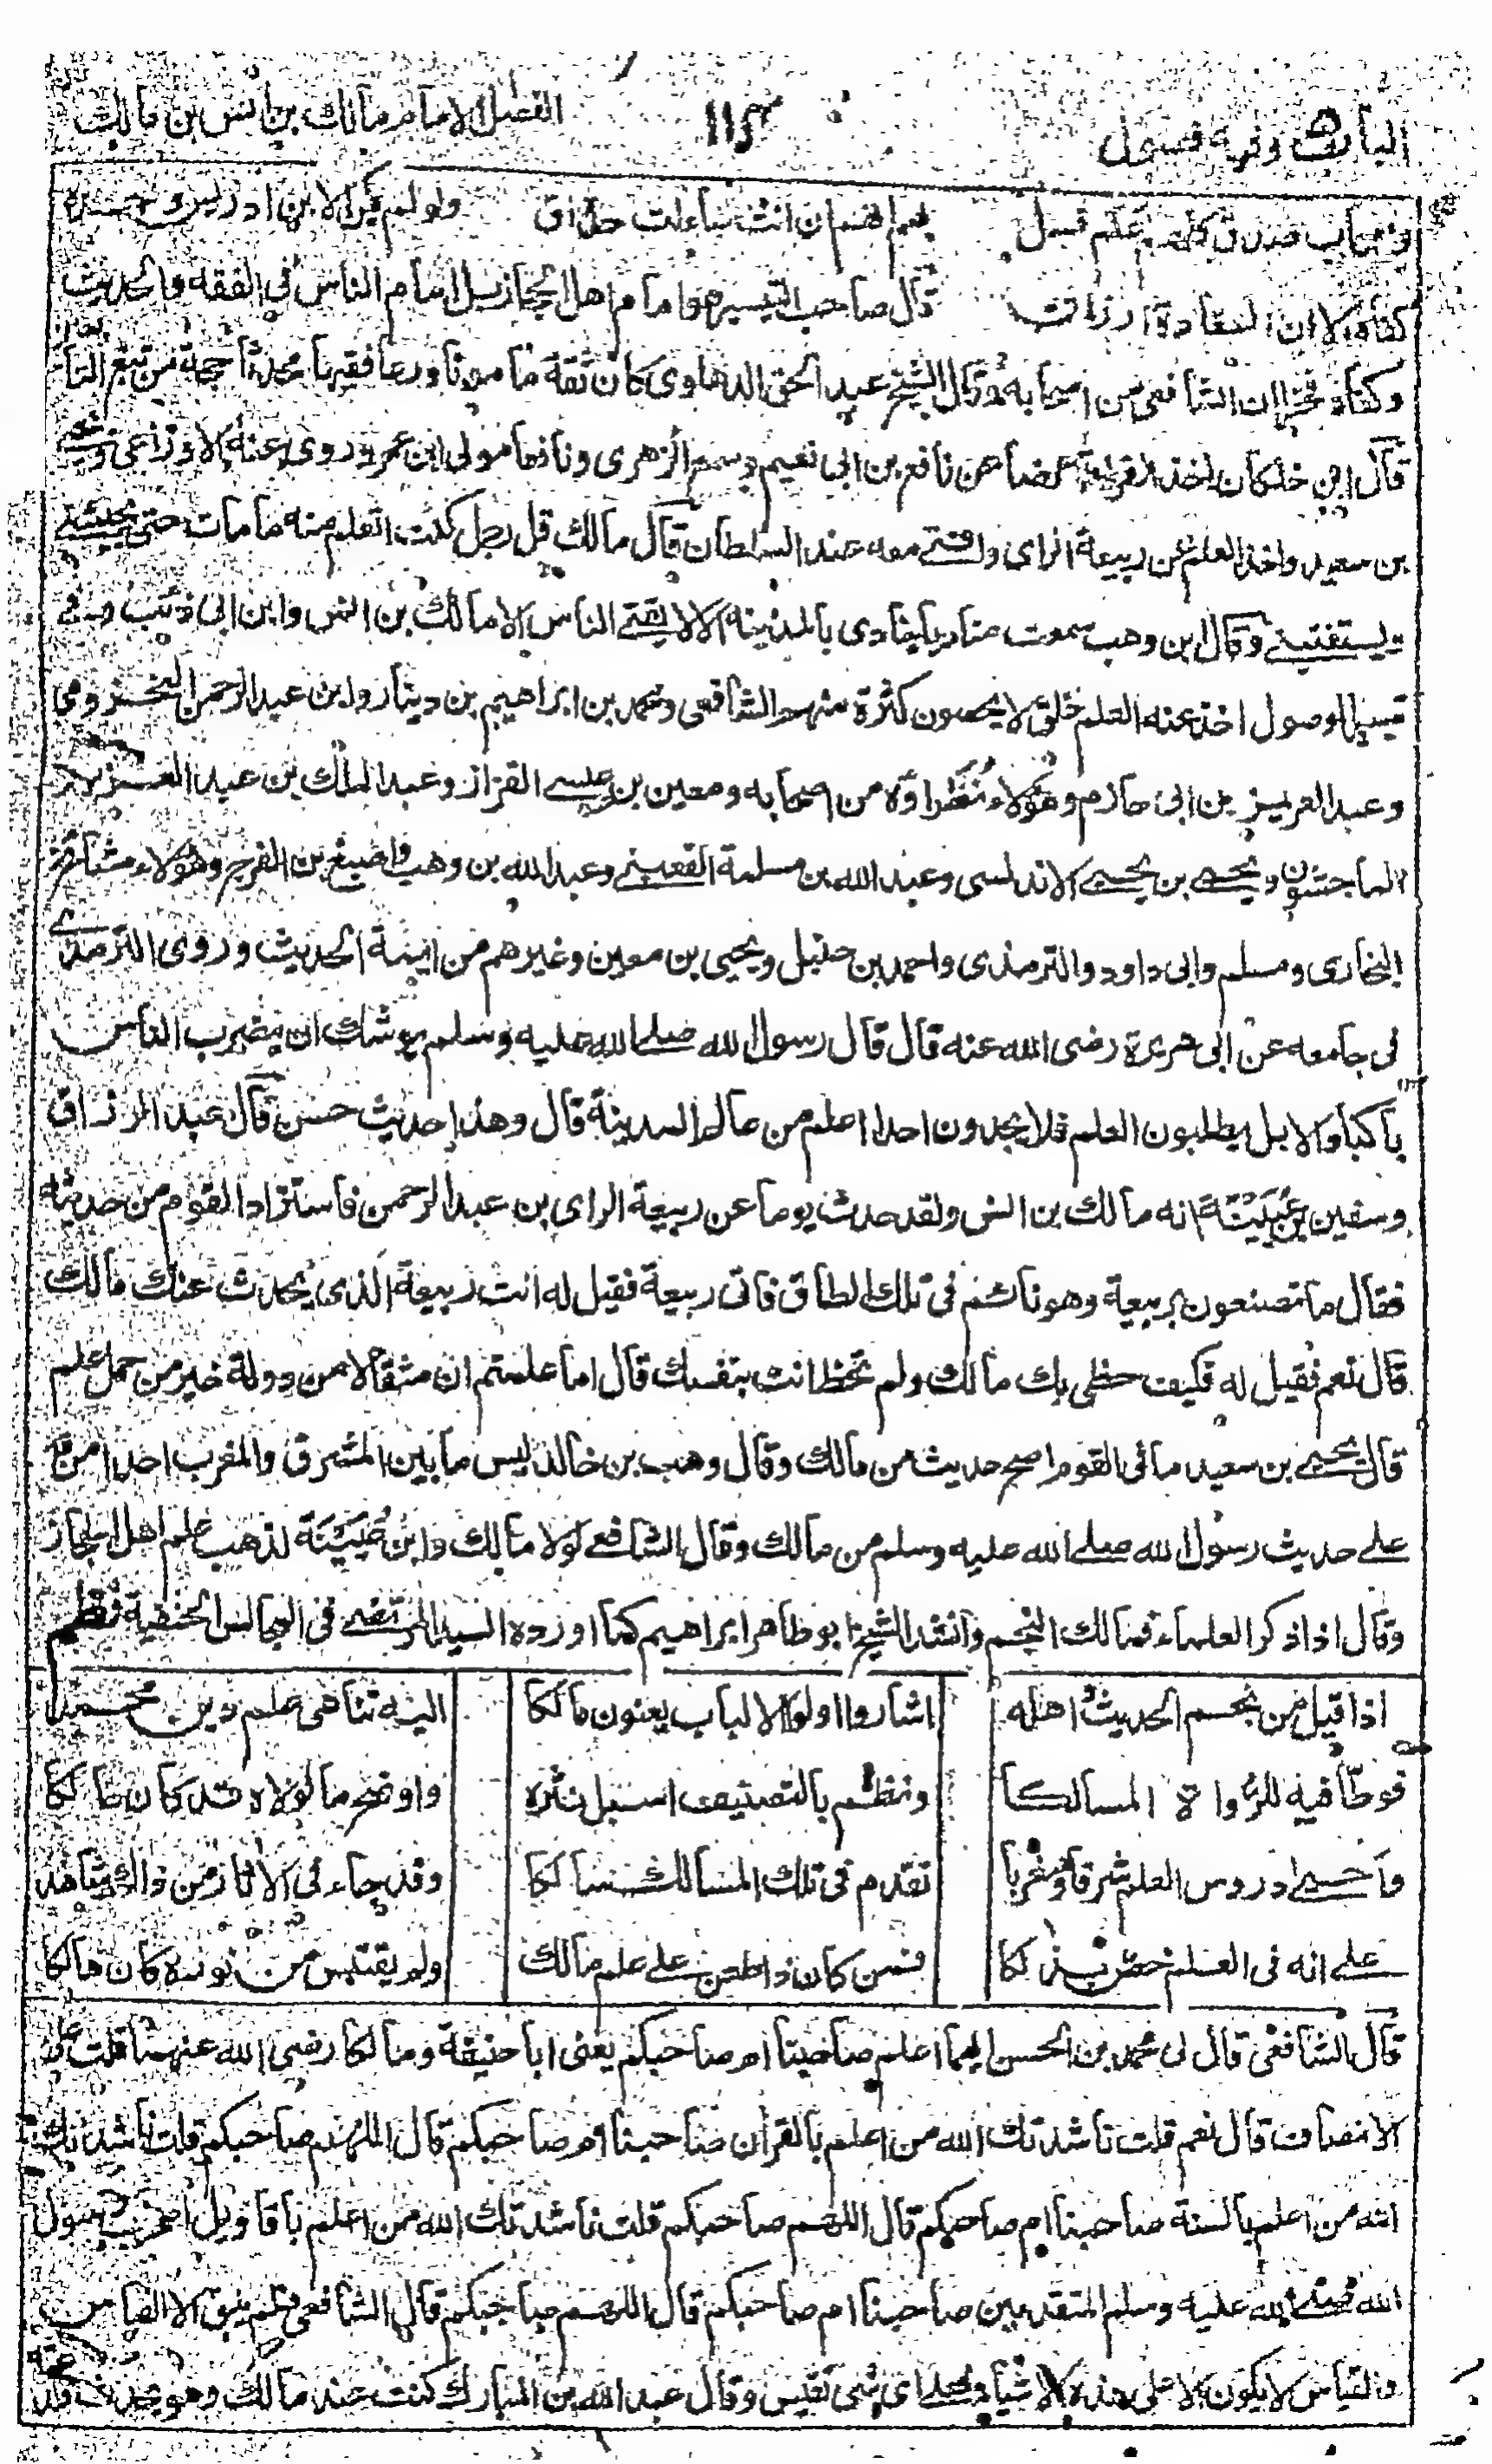 الباب وفيه فصول ١١٣ الفصل الامام مالك بن انس بن مالك
صدق علم قبل نعم الهضم ان انت ساءلت ولو لم يكن الا ابن ادريس وحده
كفاه الا ان السعادة ارزاق قال صاحب التيسير هو امام اهل الحجاز بل امام الناس في الفقه والحديث
وكفاه فخرا ان الشافعي من اصحابه وقال الشيخ عبد الحق الدهلوي كان ثقة مامونا ورعا فقيها محدثا حجة من تبع التابعين
قال ابن خلكان اخذ القراءة عرضا عن نافع بن ابي نعيم وسمع الزهري ونافعا مولى ابن عمر وروى عنه الاوزاعي ويحيى
بن سعيد واخذ العلم عن ربيعة الراي وافتى معه عند السلطان قال مالك قل رجل كنت اتعلم منه ما مات حتى يجيئني
يستفتيني وقال ابن وهب سمعت مناديا ينادي بالمدينة الا لا يفتي الناس الا مالك بن انس وابن ابي ذئب وفي
تيسير الوصول اخذ عنه العلم خلق لا يحصون كثرة منهم الشافعي ومحمد بن ابراهيم بن دينار وابن عبد الرحمن المخزومي
وعبد العزيز بن ابي حازم وهؤلاء نظراؤه من اصحابه ومعين بن عيسى القزاز وعبد الملك بن عبد العزيز
الماجشون ويحيى بن يحيى الاندلسي وعبد الله بن مسلمة القعنبي وعبد الله بن وهب واصبغ بن الفرج وهؤلاء مشائخ
البخاري ومسلم وابي داود والترمذي واحمد بن حنبل ويحيى بن معين وغيرهم من ايمة الحديث وروى الترمذي
في جامعه عن ابي هريرة رضي الله عنه قال قال رسول الله صلى الله عليه وسلم يوشك ان يضرب الناس
باكباد الابل يطلبون العلم فلا يجدون احدا اعلم من عالم المدينة قال وهذا حديث حسن قال عبد الرزاق
وسفين بن عُيَيْنَة انه مالك بن انس ولقد حدث يوما عن ربيعة الراي بن عبد الرحمن فاستزاد القوم من حديثه
فقال ما تصنعون بربيعة وهو نائم في تلك الطاق فاتى ربيعة فقيل له انت ربيعة الذي يحدث عنك مالك
قال نعم فقيل له فكيف حظي بك مالك ولم تحظ انت بنفسك قال اما علمتم ان مثقالا من دولة خير من حمل علم
قال يحيى بن سعيد ما في القوم اصح حديث من مالك وقال وهب بن خالد ليس ما بين المشرق والمغرب احد امن
على حديث رسول الله صلى الله عليه وسلم من مالك وقال الشافعي لولا مالك وابن عُيَيْنَة لذهب علم اهل الحجاز
وقال اذا ذكر العلماء فمالك النجم وانشد الشيخ ابو طاهر ابراهيم كما اورده السيد المرتضى في المجالس الحنفية نظم
اذا قيل من نجم الحديث اهله اشاروا اولو الالباب يعنون مالكا اليه تناهى علم دين محمد
فوطّأ فيه للرُّواة المسالكا ونظم بالتصنيف اسبل نثره واوضح ما لولاه قد كان حالكا
واحيى دروس العلم شرقا ومغربا تقدم في تلك المسالك سالكا وقد جاء في الاثار من ذاك شاهد
على انه في العلم خصّ بذلكا فمن كان ذا طعن على علم مالك ولم يقتبس من نوره كان هالكا
قال الشافعي قال لي محمد بن الحسن ايهما اعلم صاحبنا ام صاحبكم يعني ابا حنيفة ومالكا رضي الله عنهما قلت على
الانصاف قال نعم قلت ناشدتك الله من اعلم بالقران صاحبنا ام صاحبكم قال اللهم صاحبكم قلت ناشدتك
الله من اعلم بالسنة صاحبنا ام صاحبكم قال اللهم صاحبكم قلت ناشدتك الله من اعلم باقاويل اصحاب رسول
الله صلى الله عليه وسلم المتقدمين صاحبنا ام صاحبكم قال اللهم صاحبكم قال الشافعي فلم يبق الا القياس
والقياس لا يكون الا على هذه الاشياء فعلى اي شي نقيس وقال عبد الله بن المبارك كنت عند مالك وهو يحدث